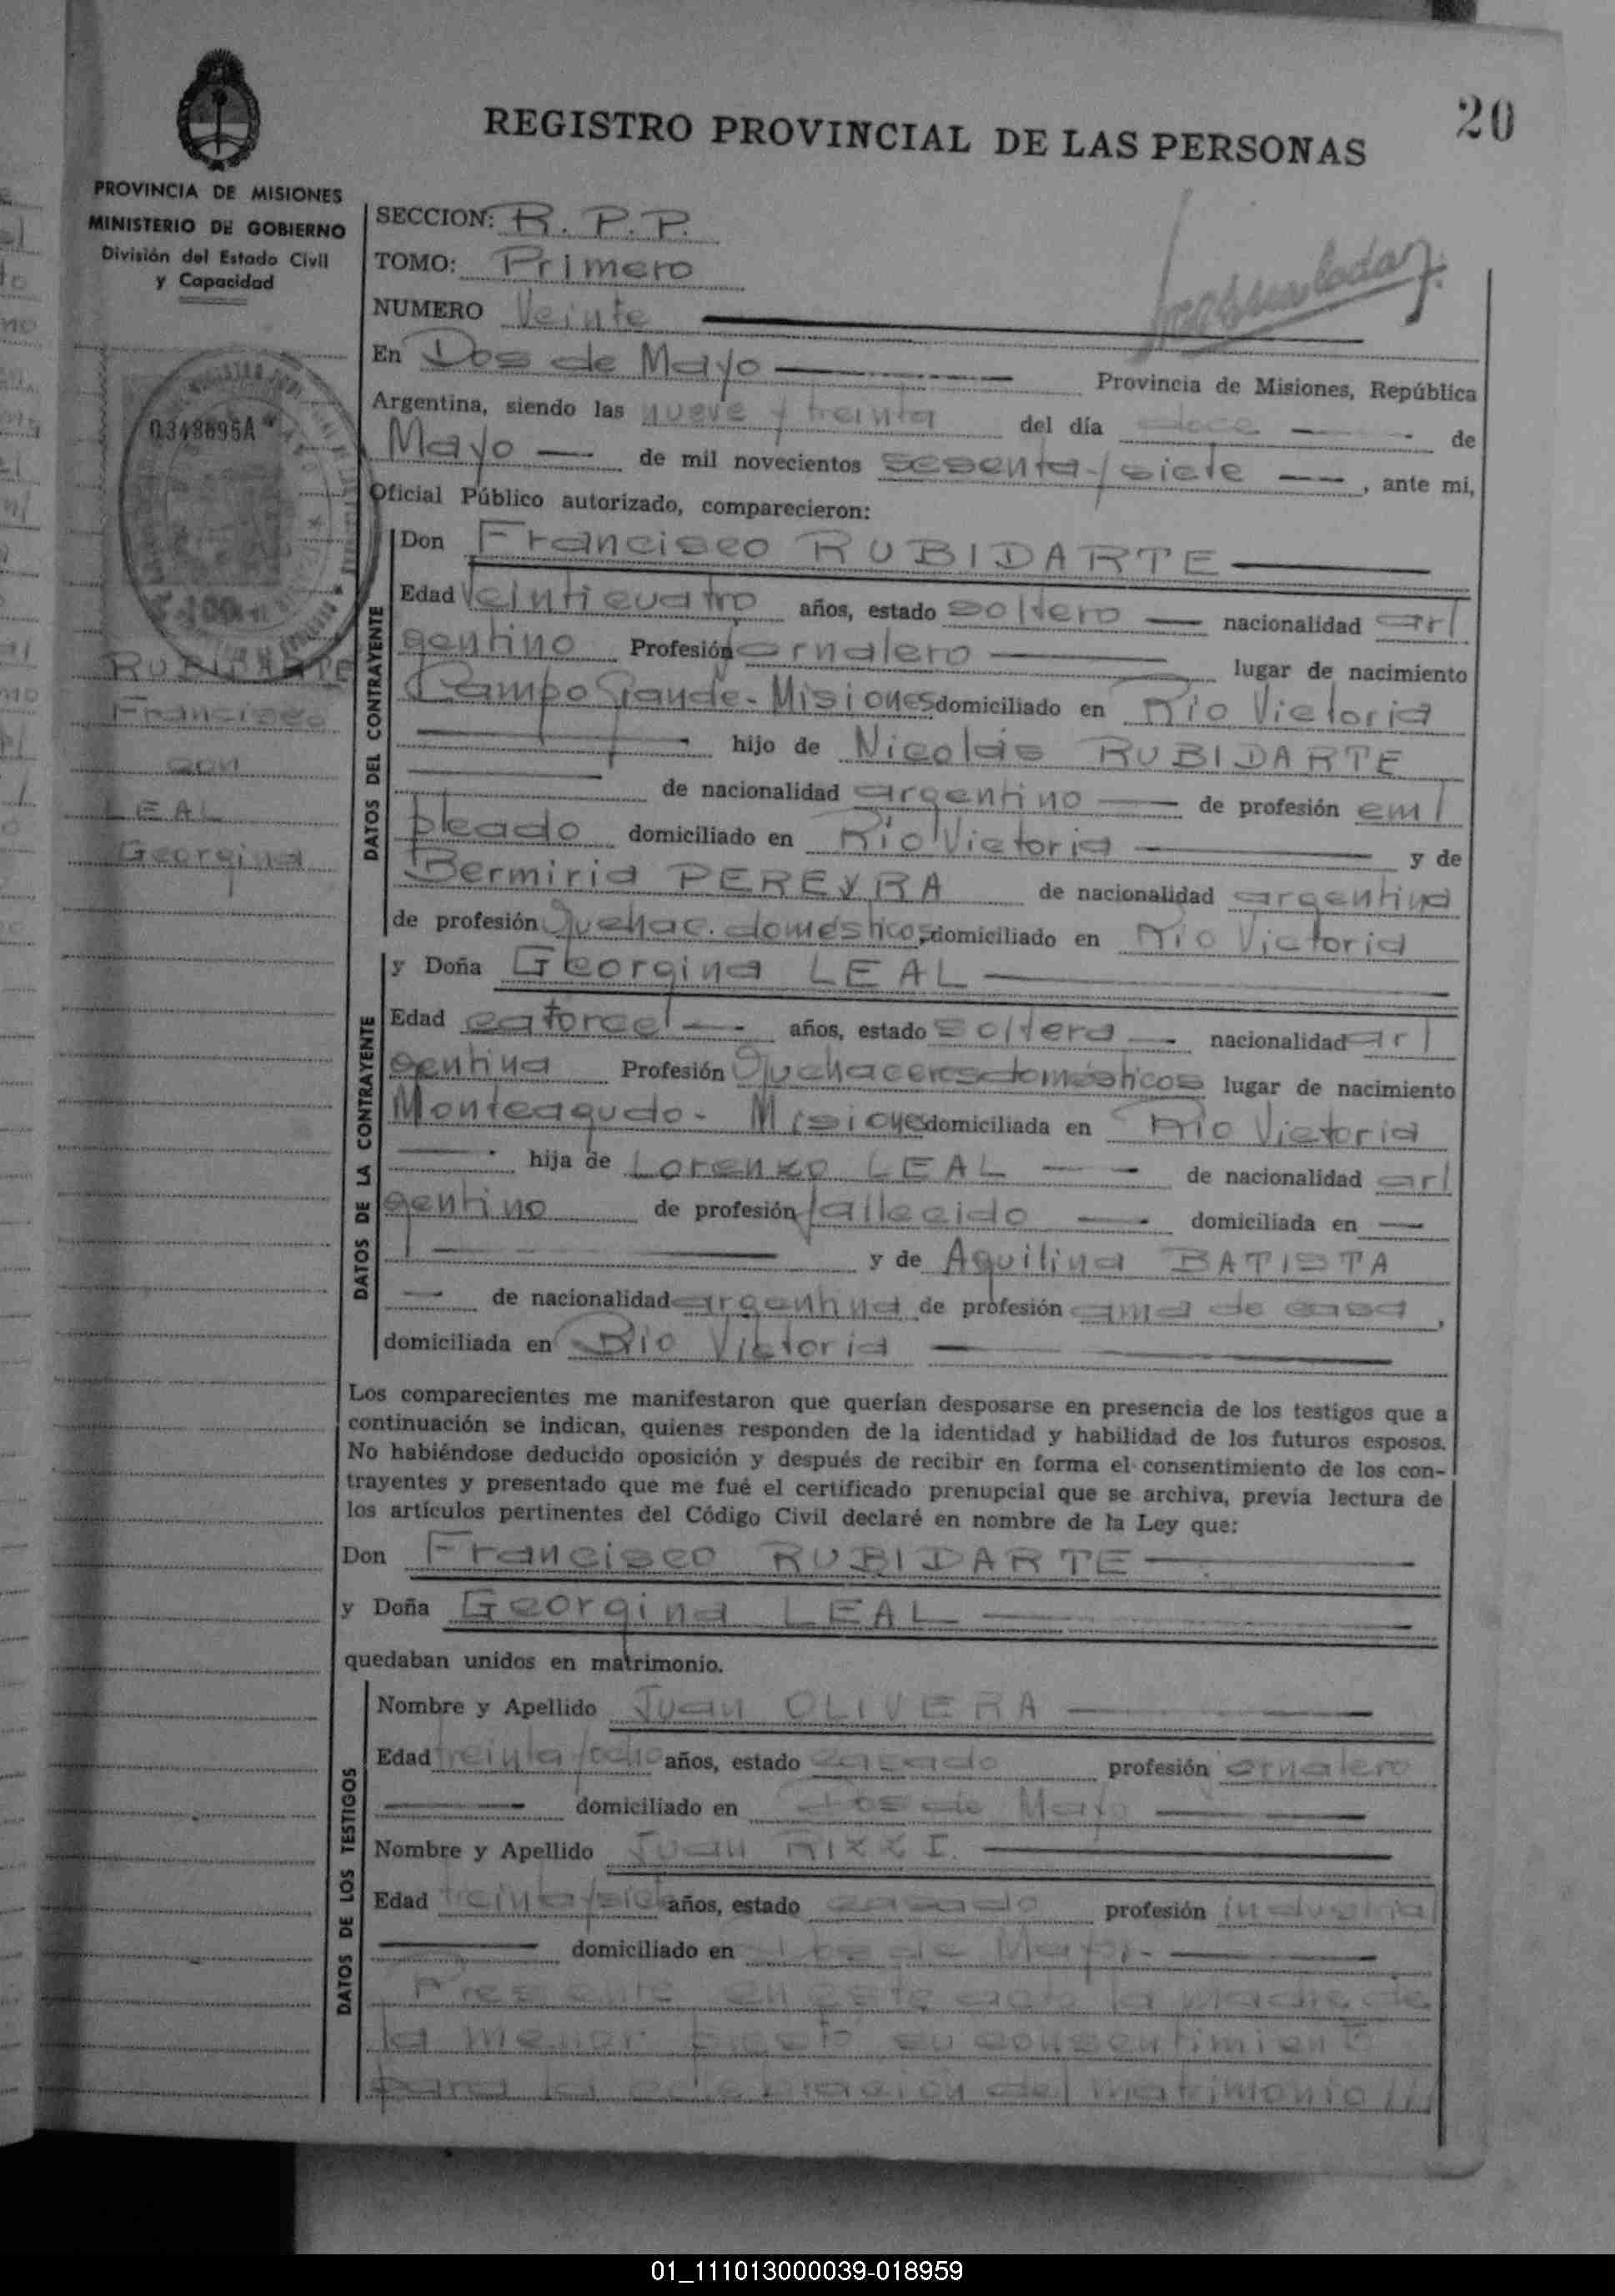 20
REGISTRO PROVINCIAL DE LAS PERSONAS
PROVINCIA DE MISIONES
MINISTERIO DE GOBIERNO
División del Estado Civil
y Capacidad
0348695A
RUBIDARTE
Francisco
con
LEAL
Georgina
SECCION: R. P. P.
TOMO: Primero
NUMERO Veinte
En Dos de Mayo Provincia de Misiones, República
Argentina, siendo las nueve y treinta del día doce de
Mayo de mil novecientos sesenta y siete, ante mi,
Oficial Público autorizado, comparecieron:
DATOS DEL CONTRAYENTE
Don Francisco RUBIDARTE
Edad Veinticuatro años, estado soltero nacionalidad ar/
gentino Profesión jornalero lugar de nacimiento
Campo Grande - Misiones domiciliado en Río Victoria
hijo de Nicolás RUBIDARTE
de nacionalidad argentino de profesión em/
pleado domiciliado en Río Victoria y de
Bermiria PEREYRA de nacionalidad argentina
de profesión Quehac. domésticos, domiciliado en Río Victoria
DATOS DE LA CONTRAYENTE
y Doña Georgina LEAL
Edad catorce años, estado soltera nacionalidad ar/
gentina Profesión Quehaceres domésticos lugar de nacimiento
Monteagudo - Misiones domiciliada en Río Victoria
hija de Lorenzo LEAL de nacionalidad ar/
gentino de profesión fallecido domiciliada en
y de Aquilina BATISTA
de nacionalidad argentina de profesión ama de casa,
domiciliada en Río Victoria
Los comparecientes me manifestaron que querían desposarse en presencia de los testigos que a
continuación se indican, quienes responden de la identidad y habilidad de los futuros esposos.
No habiéndose deducido oposición y después de recibir en forma el consentimiento de los con-
trayentes y presentado que me fué el certificado prenupcial que se archiva, previa lectura de
los artículos pertinentes del Código Civil declaré en nombre de la Ley que:
Don Francisco RUBIDARTE
y Doña Georgina LEAL
quedaban unidos en matrimonio.
DATOS DE LOS TESTIGOS
Nombre y Apellido Juan OLIVERA
Edad treinta y ocho años, estado casado profesión jornalero
domiciliado en Dos de Mayo
Nombre y Apellido Juan RIZZI.
Edad treinta y siete años, estado casado profesión industrial
domiciliado en Dos de Mayo.-
Presente en este acto la madre de
la menor prestó su consentimiento
para la celebración del matrimonio ///
01_111013000039-018959